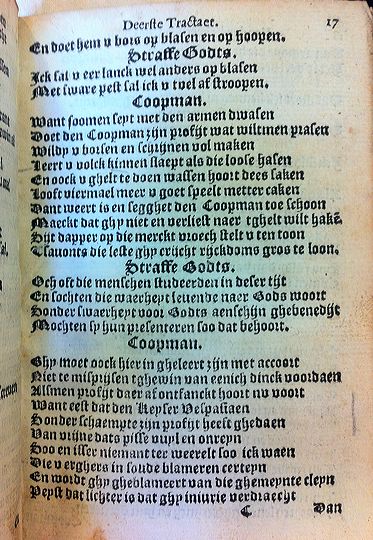 Deerste Tractaet. 17
En doet hem u bors op blasen en op hoopen.
Straffe Godts.
Ick sal u eer lanck wel anders op blasen
Met sware pest sal ick u tvel af stroopen.
Coopman.
Want soomen seyt met den armen dwasen
Doet den Coopman zijn profijt wat wiltmen prasen
Wildy u borsen en schrijnen vol maken
Leert u volck kinnen slaept als die loose hasen
En oock u ghelt te doen wassen hoort dees saken
Looft viermael meer u goet speelt metter caken
Dant weert is en segghet den Coopman toe schoon
Maeckt dat ghy niet en verliest naer tghelt wilt hakē
Zijt dapper op die merckt vroech stelt u ten toon
Tsauonts die leste ghy crijcht rijckdoms gros te loon.
Straffe Godts.
Och oft die menschen studeerden in deser tijt
En sochten die waerheyt leuende naer Gods woort
Sonder swaerheyt voor Godts aenschijn ghebenedijt
Mochten sy hun presenteren soo dat behoort.
Coopman.
Ghy moet oock hier in gheleert zijn met accoort
Niet te misprijsen tghewin van eenich dinck voordaen
Alsmen profijt daer af ontfanckt hoort nu voort
Want eest dat den Keyser Vespasiaen
Sonder schaempte zijn profijt heeft ghedaen
Van vrijne dats pisse vuyl en onreyn
Soo en isser niemant ter weerelt soo ick waen
Die u erghers in soude blameren certeyn
En wordt ghy gheblameert van die ghemeynte cleyn
Peyst dat lichter is dat ghy iniurie verdraecht
C Dan